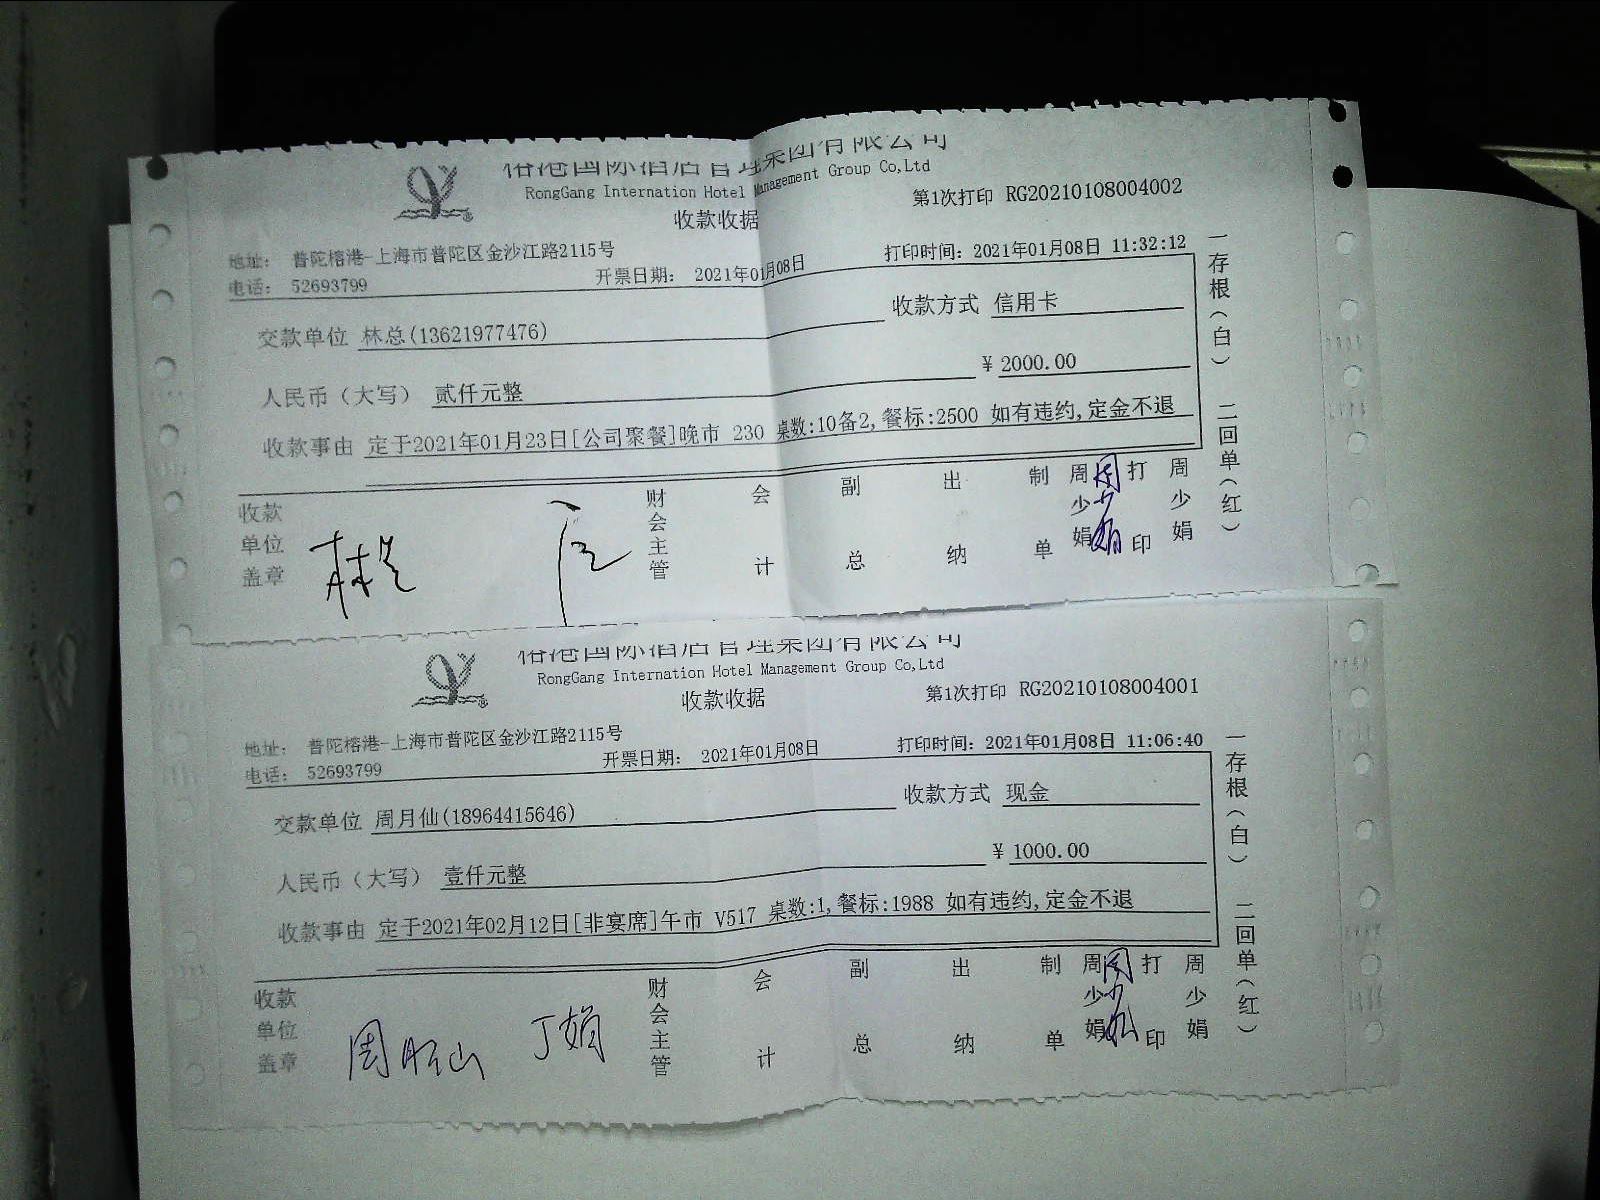 榕港国际酒店管理集团有限公司
RongGang Internation Hotel Management Group Co,Ltd
收款收据
第1次打印 RG20210108004002
地址: 普陀榕港-上海市普陀区金沙江路2115号
电话: 52693799
开票日期: 2021年01月08日
打印时间: 2021年01月08日 11:32:12
交款单位 林总(13621977476)
收款方式 信用卡
人民币（大写） 贰仟元整
¥ 2000.00
收款事由 定于2021年01月23日[公司聚餐]晚市 230 桌数:10备2,餐标:2500 如有违约,定金不退
一存根(白) 二回单(红)
收款单位盖章
财会主管
会计
副总
出纳
制单 周少娟 周少娟
打印 周少娟
榕港国际酒店管理集团有限公司
RongGang Internation Hotel Management Group Co,Ltd
收款收据
第1次打印 RG20210108004001
地址: 普陀榕港-上海市普陀区金沙江路2115号
电话: 52693799
开票日期: 2021年01月08日
打印时间: 2021年01月08日 11:06:40
交款单位 周月仙(18964415646)
收款方式 现金
人民币（大写） 壹仟元整
¥ 1000.00
收款事由 定于2021年02月12日[非宴席]午市 V517 桌数:1,餐标:1988 如有违约,定金不退
一存根(白) 二回单(红)
收款单位盖章
丁娟
财会主管
会计
副总
出纳
制单 周少娟
打印 周少娟